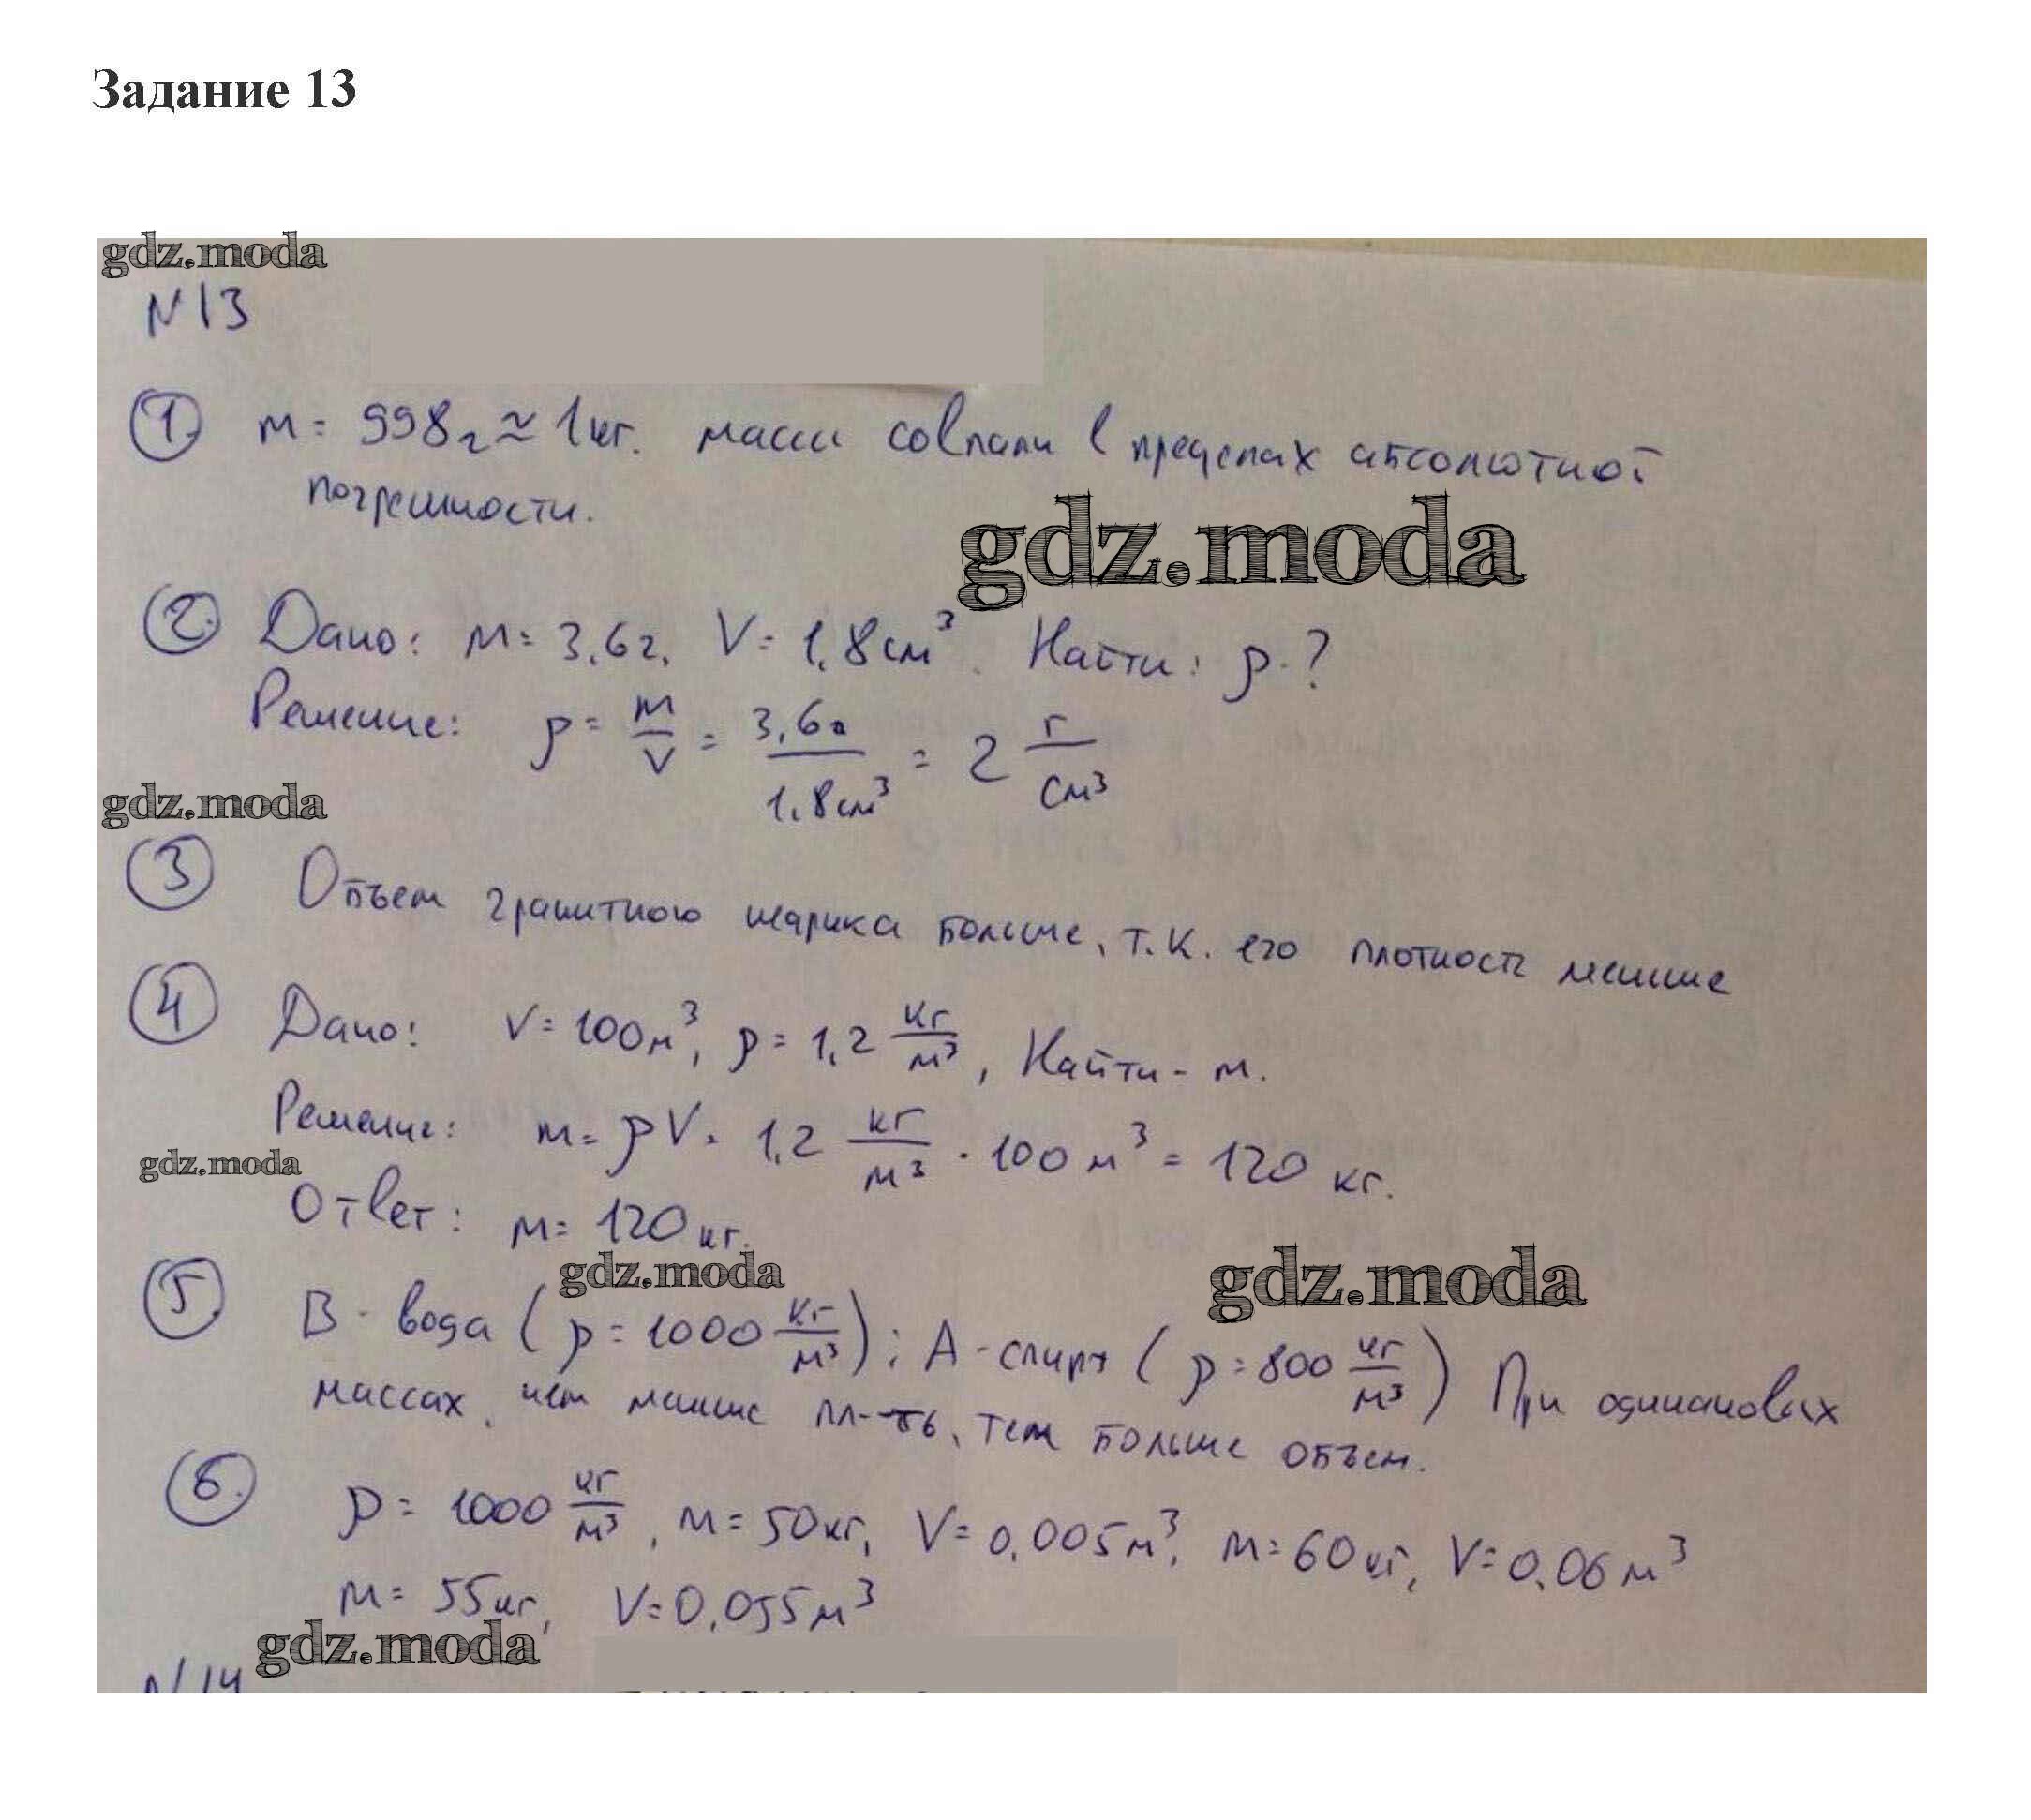 Задание 13
gdz.moda
N13
1. m = 998г ≈ 1кг. массы совпали в пределах абсолютной
погрешности.
gdz.moda
2. Дано: m = 3,6г, V = 1,8см³. Найти: ρ-?
Решение: ρ = m/V = 3,6г/1,8см³ = 2 г/см³
gdz.moda
3 Объем гранитного шарика больше, т.к. его плотность меньше
4 Дано: V = 100м³, ρ = 1,2 кг/м³, Найти - m.
Решение: m = ρV = 1,2 кг/м³ · 100 м³ = 120 кг.
gdz.moda
Ответ: m = 120 кг.
gdz.moda gdz.moda
5. В - вода (ρ = 1000 кг/м³); А - спирт (ρ = 800 кг/м³) При одинаковых
массах, чем меньше пл-ть, тем больше объем.
6. ρ = 1000 кг/м³, m = 50кг, V = 0,005м³, m = 60кг, V = 0,06м³
m = 55кг, V = 0,055м³
gdz.moda
N14